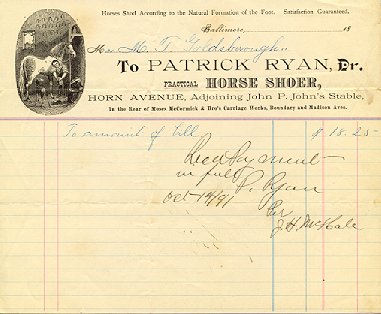 Horses Shod According to the Natural Formation of the Foot. Satisfaction Guaranteed.
Baltimore, 18
M. T. Goldsborough
To PATRICK RYAN, Dr.
PRACTICAL HORSE SHOER,
HORN AVENUE, Adjoining John P. John's Stable,
In the Rear of Moses McCormick & Bro's Carriage Works, Boundary and Madison Aves.
To amount of bill $ 18.25
Rec'd payment
in full
P. Ryan
Oct 14/91
Per
J. H. McHale